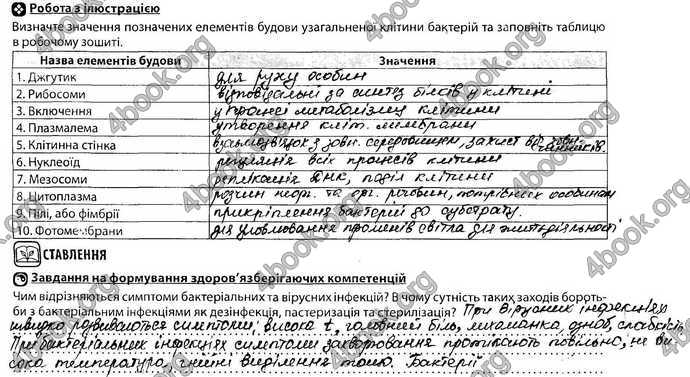 Робота з ілюстрацією
Визначте значення позначених елементів будови узагальненої клітини бактерій та заповніть таблицю
в робочому зошиті.
Назва елементів будови Значення
1. Джгутик для руху особин
2. Рибосоми відповідальні за синтез білків у клітині
3. Включення у процесі метаболізму клітини
4. Плазмалема утворення кліт. мембрани
5. Клітинна стінка взаємозв'язок з зовн. середовищем, захист від зовн. чинників.
6. Нуклеоїд регуляція всіх процесів клітини
7. Мезосоми реплікація ДНК, поділ клітини
8. Цитоплазма розчин неорг. та орг. речовин, потрібних особинам
9. Пілі, або фімбрії прикріплення бактерій до субстрату.
10. Фотомембрани для уловлювання променів світла для життєдіяльності
СТАВЛЕННЯ
Завдання на формування здоров'язберігаючих компетенцій
Чим відрізняються симптоми бактеріальних та вірусних інфекцій? В чому сутність таких заходів бороть-
би з бактеріальним інфекціями як дезінфекція, пастеризація та стерилізація? При вірусних інфекціях
швидко розвиваються симптоми, висока t, головний біль, лихоманка, озноб, слабкість.
При бактеріальних інфекціях симптоми захворювання протікають повільно, не ви-
сока температура, гнійні виділення тощо. Бактерії
4book.org